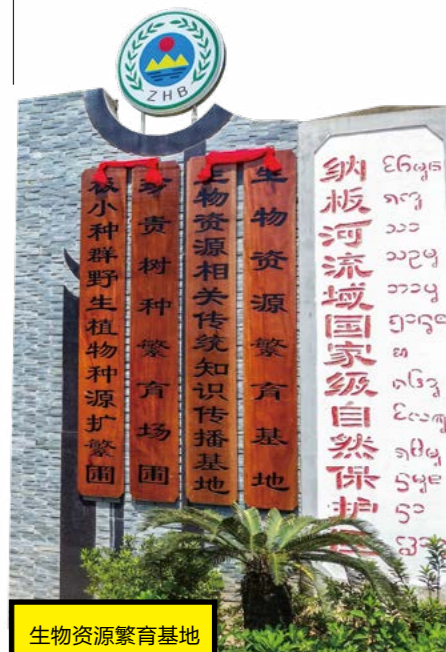 ZHB
极小种群野生植物种源扩繁圃
珍贵树种繁育场圃
生物资源相关传统知识传播基地
生物资源繁育基地
纳板河流域国家级自然保护区
生物资源繁育基地